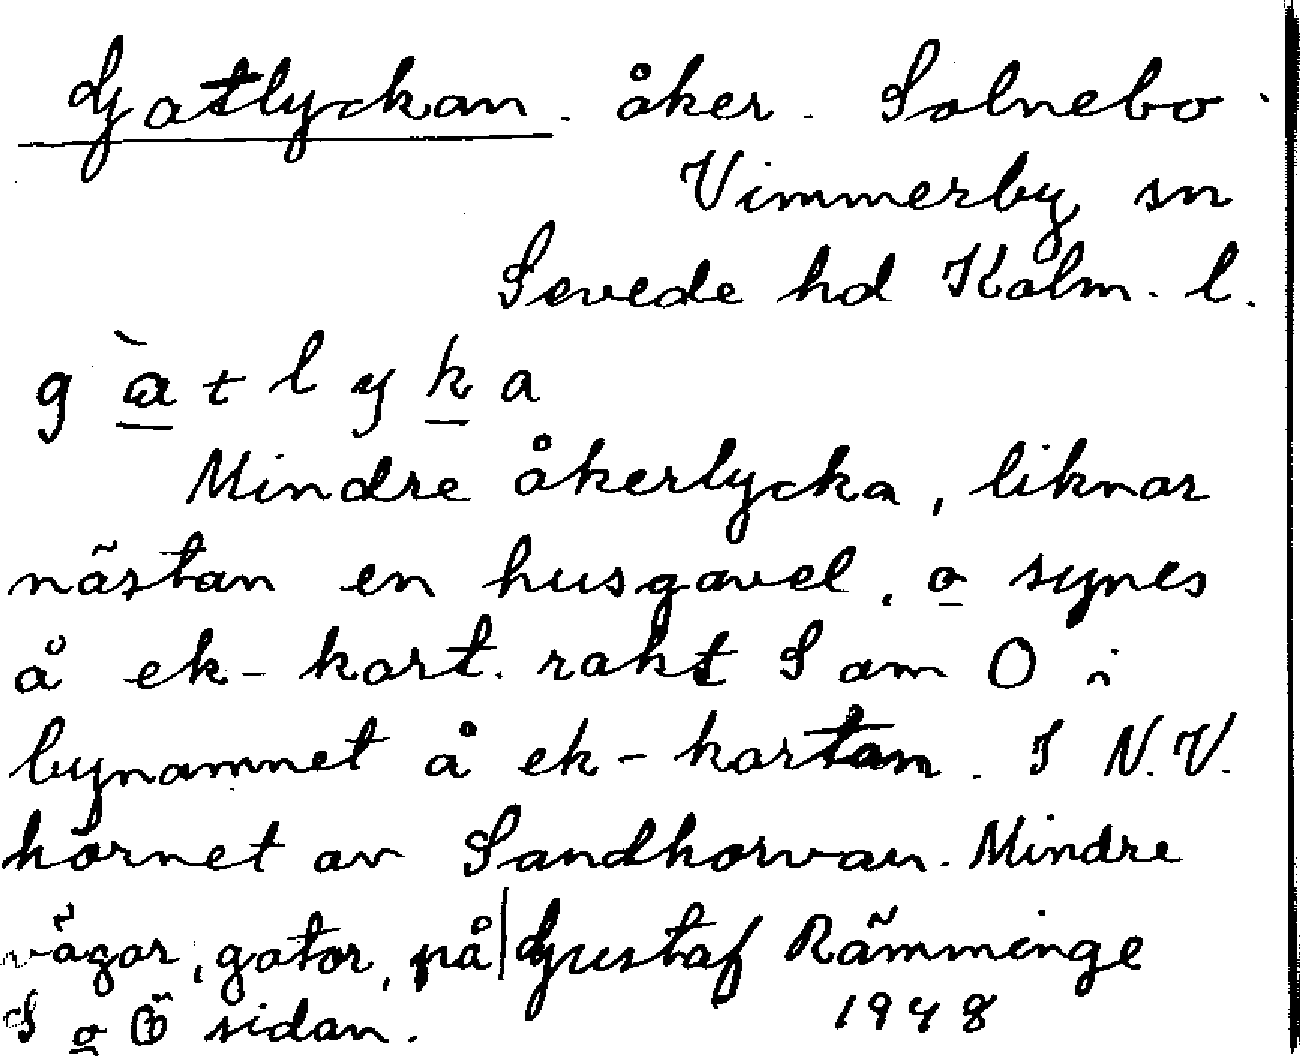 Gatlyckan. åker. Solnebo.
Vimmerby sn
Sevede hd Kalm. l.
g à t l y k a
Mindre åkerlycka, liknar
nästan en husgavel, o synes
å ek-kart. rakt S om O i
bynamnet å ek-kartan. I N.V.
hörnet av Sandkorvan. Mindre
vägar, gator, på | Gustaf Rämminge
S o Ö sidan. 1948